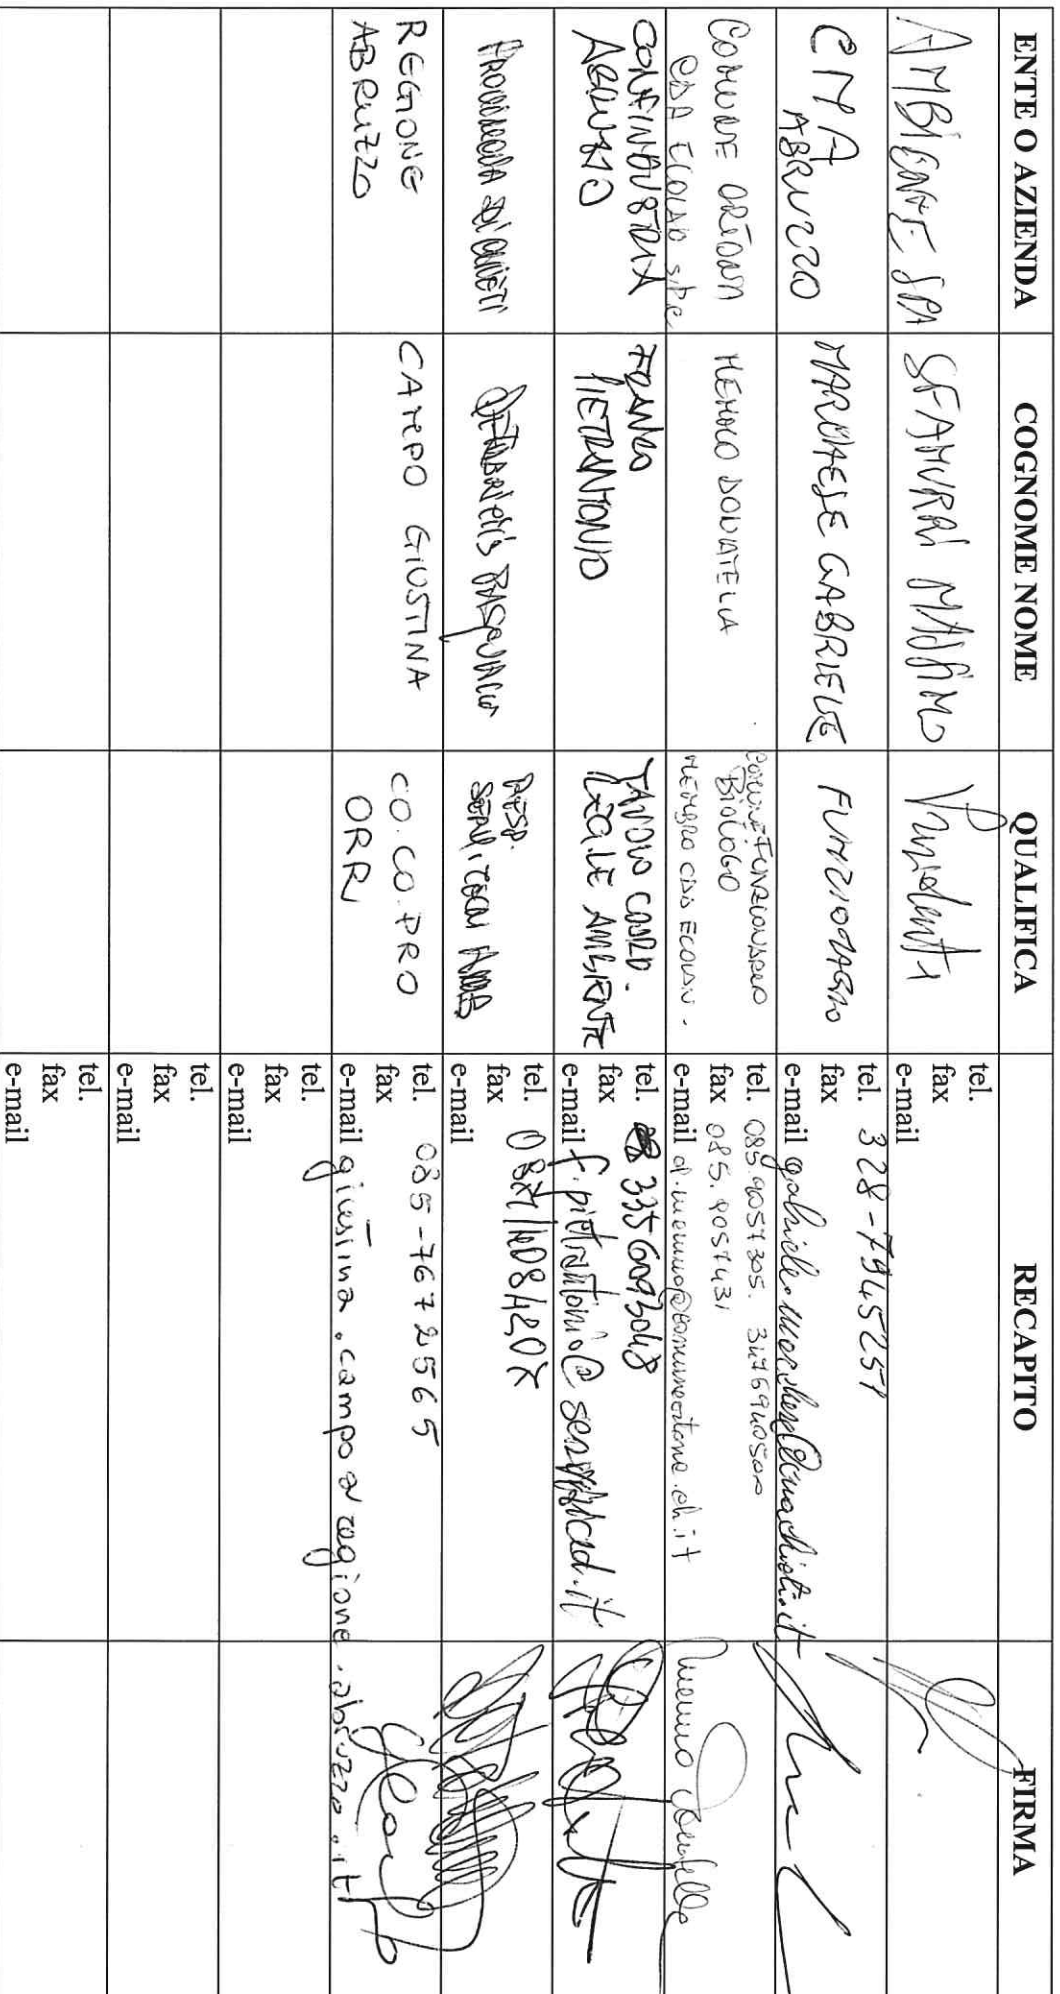 ENTE O AZIENDA COGNOME NOME QUALIFICA RECAPITO FIRMA
AMBIENTE SPA SFAMURRI MASSIMO Presidente
tel.
fax
e-mail
CMA
ABRUZZO
MARCHESE GABRIELE FUNZIONARIO
tel. 328-7945251
fax
e-mail
COMUNE ORTONA
CDA ECOLAN S.p.A.
MEMMO DONATELLA
COMUNE FUNZIONARIO
BIOLOGO
MEMBRO CDA ECOLAN.
tel. 085.9057305.
fax 085.9057431
e-mail d.memmo@comuneortona.ch.it
Memmo Donatella
CONFINDUSTRIA
ABRUZZO
FRANCO
PIETRANTONIO
TAVOLO COORD.
LEGALE AMBIENTE
tel. 3356093048
fax
e-mail
PROVINCIA DI CHIETI
RESP.
tel.
fax
e-mail
REGIONE
ABRUZZO
CAMPO GIUSTINA
CO.CO.PRO
ORR
tel. 085-7672565
fax
e-mail giustina.campo@regione.abruzzo.it
tel.
fax
e-mail
tel.
fax
e-mail
tel.
fax
e-mail